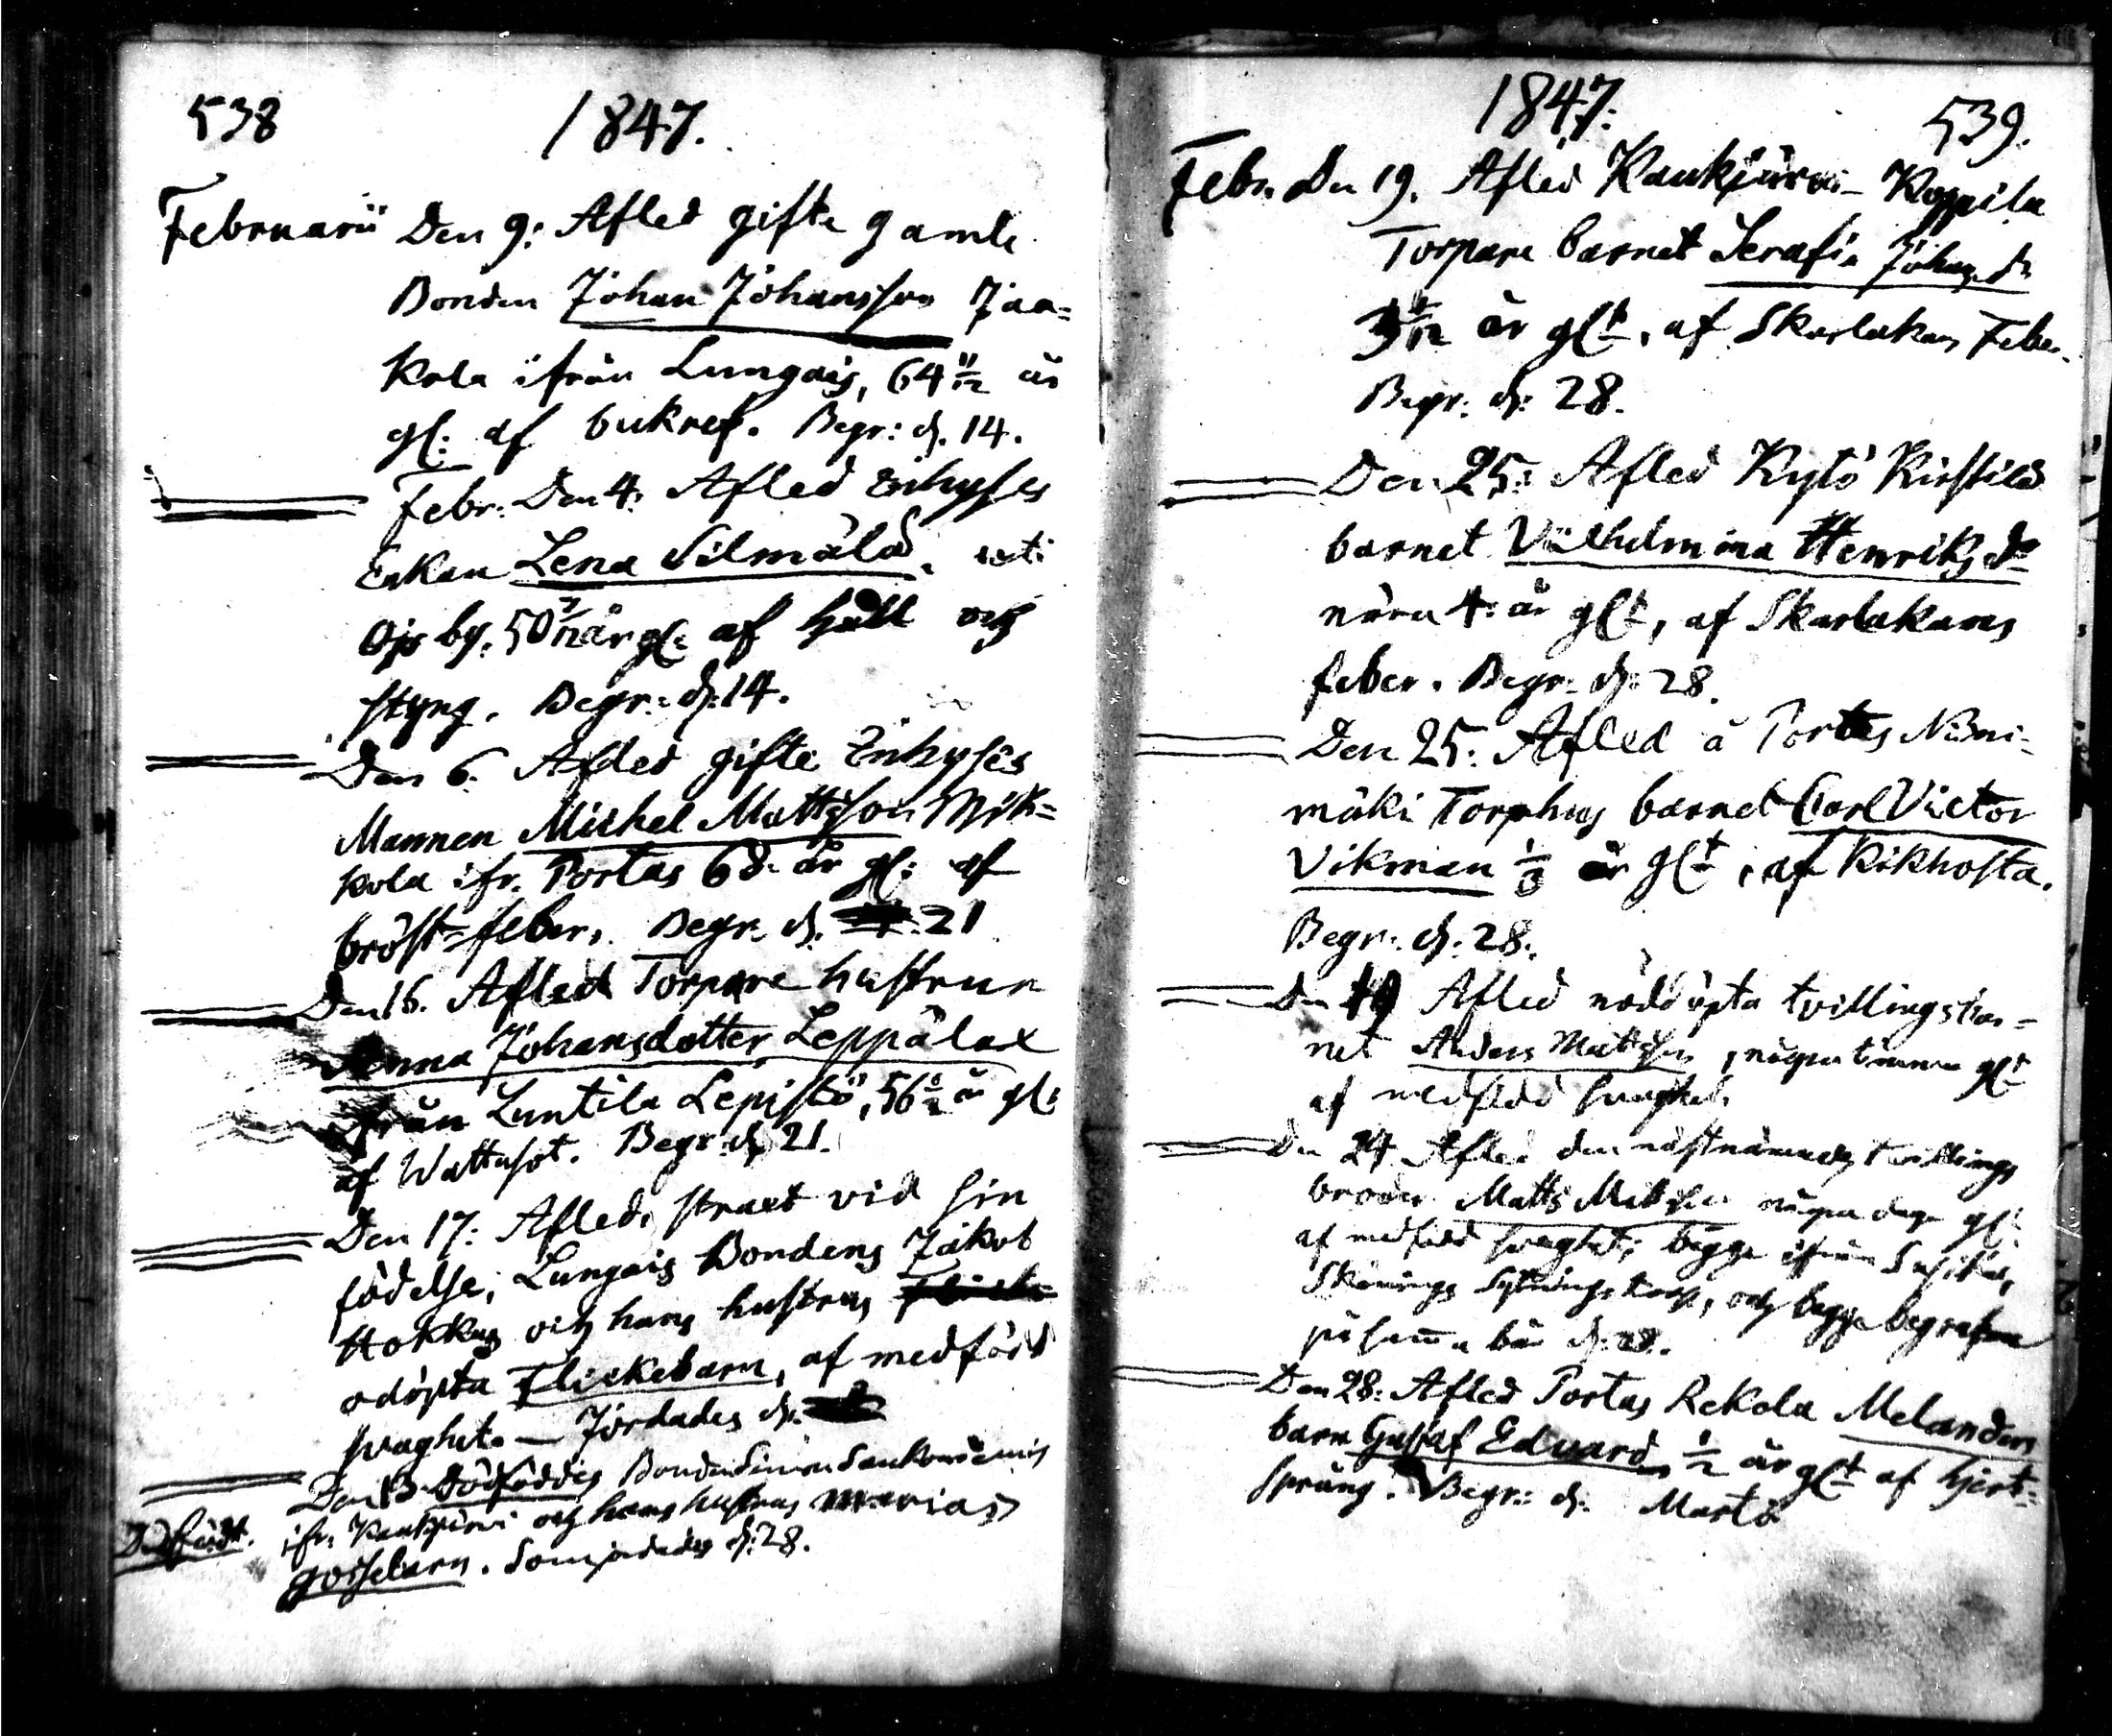 538 1847.
Februarii Den 9: Afled gifte gamle
Bonden Johan Johansson Jaa=
kola ifrån Lungais, 64 11/12 år
gl: af bukref. Begr: d. 14.
Febr: Den 4: Afled Enhyses
Enkan Lena Silmälä, uti
by. 50 7/12 år gl: af håll och
styng. Begr: d: 14.
Den 6. Afled gifte Inhyses
Mannen Michel Mattsson Mik=
kola ifr. Portas 68 år gl: af
bröst=feber. Begr. d. 21
Den 16. Afled Torpare hustrun
Anna Johansdotter Leppälax
från Luntila Lepistö, 56 år gl:
af Wattusot. Begr: d. 21.
Den 17: Afled, straxt vid sin
födelse, Lungais Bondens Jakob
Hokkas och hans hustrus
odöpta Flickebarn, af medfödd
svaghet. — Jordades d.
Den 13. Dödföddes Bonden Simon
ifr. Kaukjärvi och hans hustrus Marias
Dödfödt.
gossebarn. Som jordades d: 28.
1847: 539.
Febr. Den 19. Afled Kaukjärvi- Koppila
Torpare barnet Serafia Johansdr
3 /12 år glt, af Skarlakans Feber.
Begr: d: 28.
Den 25: Afled Kylö Kirstilä
barnet Vilhelmina Henriksdr
nära 4: år glt, af Skarlakans
feber. Begr: d: 28.
Den 25: Afled å Portas Nini=
mäki Torphus barnet Carl Victor
Vikman 1/3 år glt, af Kikhosta.
Begr: d: 28.
Den 19 Afled nöddöpta tvillingsbar=
net Anders Mattsson, några timmar glt
af medfödd svaghet.
Den 24 Afled den nästnämndes tvillings
broder Matts Mattsson några dagar gl:
af medfödd svaghet; bägge ifrån
Skånings Sytnings torp, och bägge begrafna
på samma bår d: 28.
Den 28: Afled Portas Rekola Melanders
barn Gustaf Edvard 1/2 år glt af hjert=
språng. Begr: d: Martii